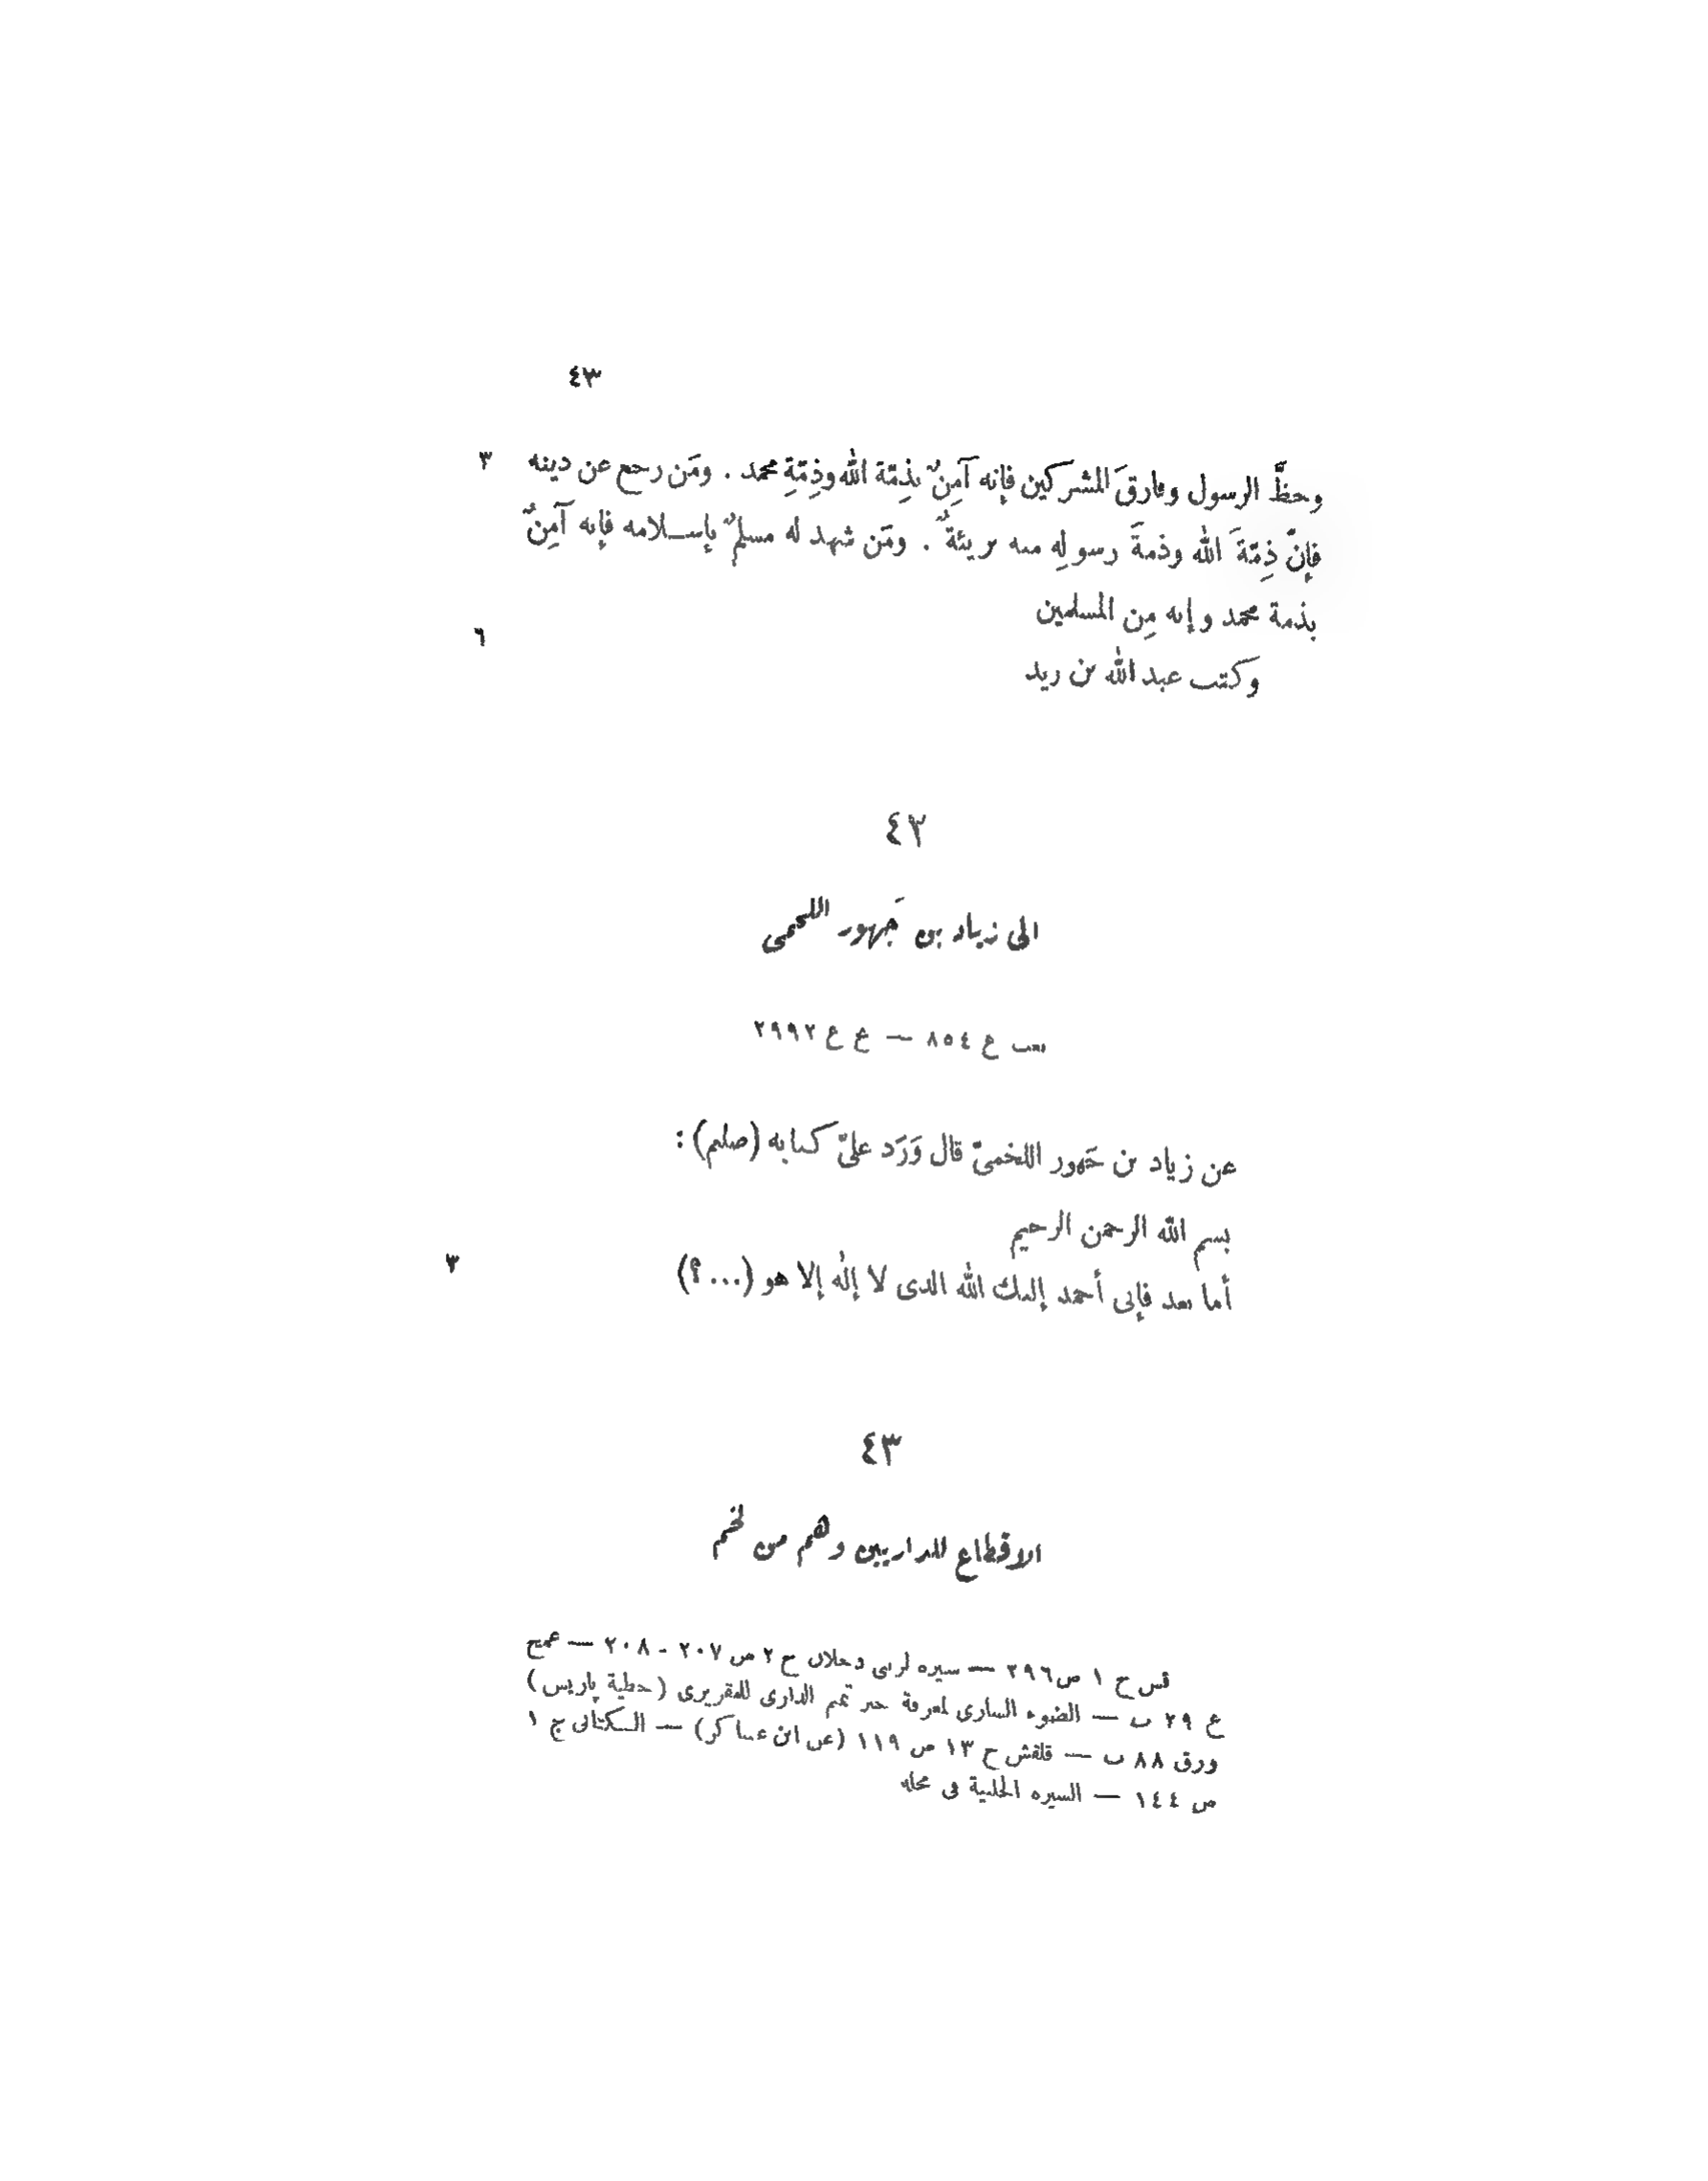 ٤٣
وحظَّ الرسول وفارقَ المشركين فإنه آمِنٌ بذِمّة الله وذِمّةِ محمد . ومَن رجع عن دينه ٣
فإنّ ذِمّةَ الله وذمةَ رسولِه منه بريئةٌ . ومَن شهد له مسلمٌ بإسلامه فإنه آمِنٌ
بذمة محمد وإنه مِن المسلمين
٦
وكتب عبد الله بن زيد
٤٢
الى زياد بن جَهور اللخمى
بعب ع ٨٥٤ — ع ع ٢٩٩٢
عن زياد بن جَهور اللخمىّ قال وَرَد علىّ كتابه (صلعم) :
بسم الله الرحمن الرحيم
أما بعد فإنى أحمد إليك الله الذى لا إلٰه إلا هو (...؟) ٣
٤٣
الاقطاع للداريين وهم من لخم
قس ج ١ ص ٢٩٦ — سيرة لزينى دحلان ج ٢ ص ٢٠٧ - ٢٠٨ — عميح
ع ٢٩ ب — الضوء السارى لمعرفة خبر تميم الدارى للمقريزى (خطية پاريس)
ورق ٨٨ ب — قلقش ج ١٣ ص ١١٩ (عن ابن عساكر) — الكتانى ج ١
ص ١٤٤ — السيرة الحلبية فى محله